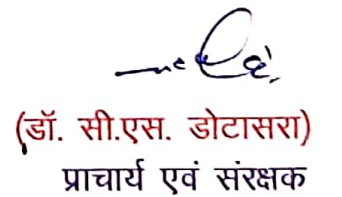 (डॉ. सी.एस. डोटासरा)
प्राचार्य एवं संरक्षक